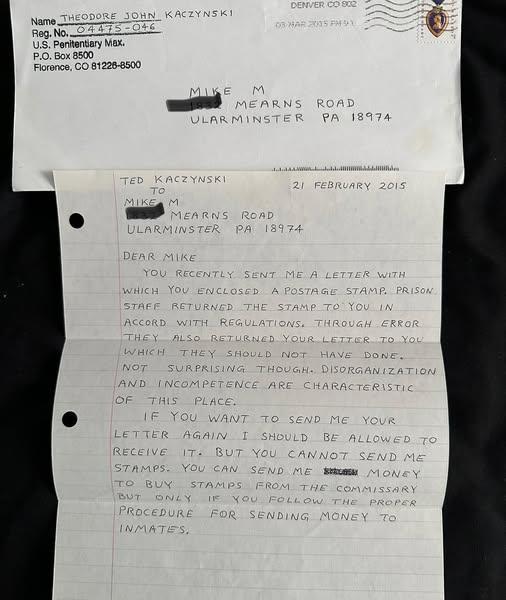 DENVER CO 802
03 MAR 2015 PM 9 L
Name THEODORE JOHN KACZYNSKI
Reg. No. 04475-046
U.S. Penitentiary Max.
P.O. Box 8500
Florence, CO 81226-8500
MIKE M
MEARNS ROAD
ULARMINSTER PA 18974
TED KACZYNSKI
TO
21 FEBRUARY 2015
MIKE M
MEARNS ROAD
ULARMINSTER PA 18974
DEAR MIKE
YOU RECENTLY SENT ME A LETTER WITH
WHICH YOU ENCLOSED A POSTAGE STAMP. PRISON
STAFF RETURNED THE STAMP TO YOU IN
ACCORD WITH REGULATIONS. THROUGH ERROR
THEY ALSO RETURNED YOUR LETTER TO YOU
WHICH THEY SHOULD NOT HAVE DONE.
NOT SURPRISING THOUGH. DISORGANIZATION
AND INCOMPETENCE ARE CHARACTERISTIC
OF THIS PLACE.
IF YOU WANT TO SEND ME YOUR
LETTER AGAIN I SHOULD BE ALLOWED TO
RECEIVE IT. BUT YOU CANNOT SEND ME
STAMPS. YOU CAN SEND ME MONEY
TO BUY STAMPS FROM THE COMMISSARY
BUT ONLY IF YOU FOLLOW THE PROPER
PROCEDURE FOR SENDING MONEY TO
INMATES.